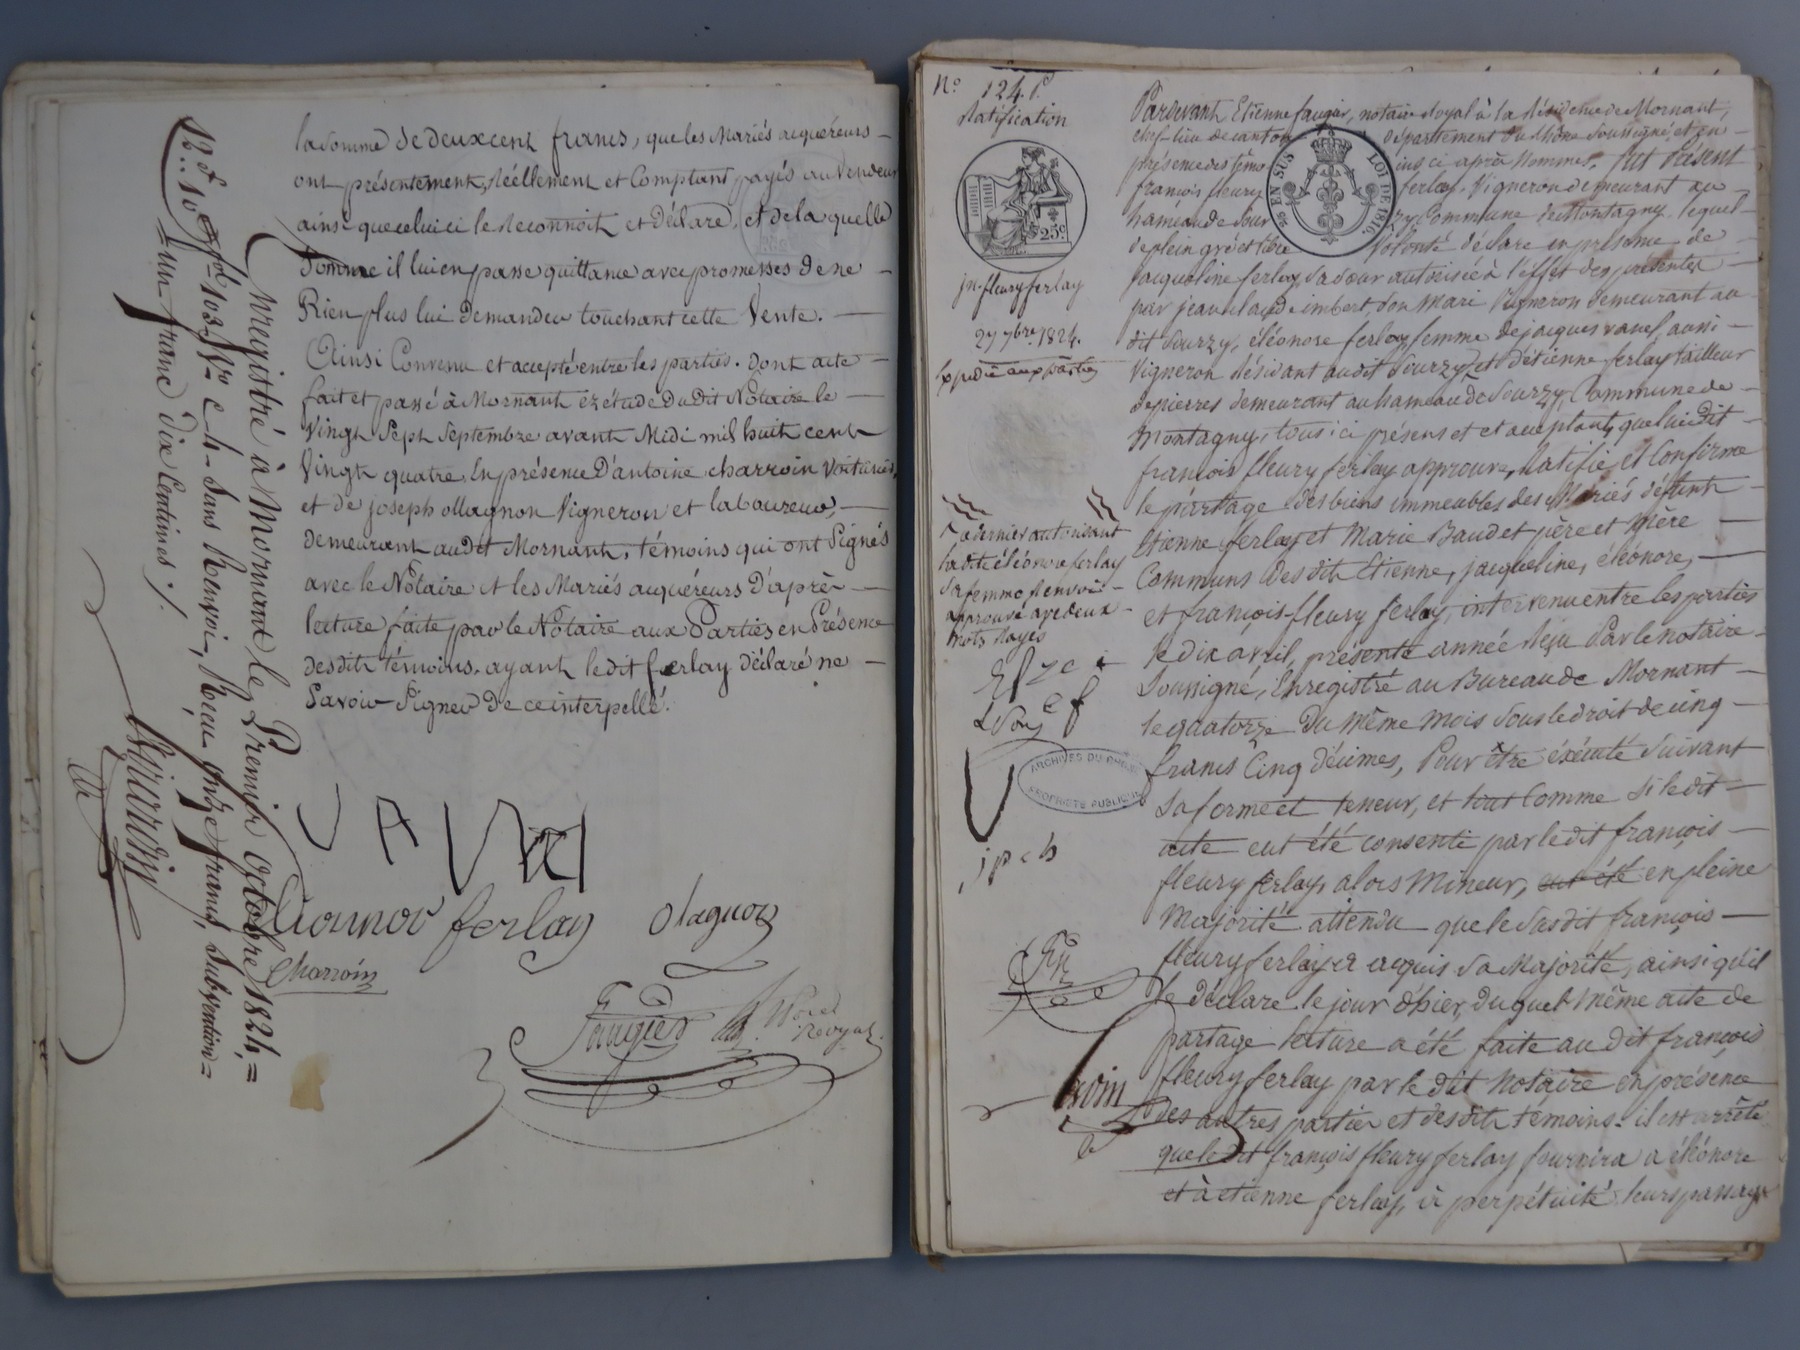 la somme de deux cent francs, que les Mariés acquéreurs
ont présentement, réellement et Comptant payés au Vendeur
ainsi que celui ci le reconnoit et déclare, et de la quelle
Somme il lui en passe quittance avec promesses de ne
Rien plus lui demander touchant cette Vente.
Ainsi Convenu et accepté entre les parties. dont acte
fait et passé à Mornant ez étude du dit Notaire le
Vingt Sept Septembre avant Midi mil huit cent
Vingt quatre. En présence d'antoine charroin voiturier,
et de joseph ollagnon Vigneron et laboureur,
demeurant audit Mornant, témoins qui ont Signés
avec le Notaire et les Mariés acquéreurs d'après
lecture faite par le Notaire aux Parties en Présence
desdits témoins. ayant le dit ferlay déclaré ne
Savoir Signer de ce interpellé.
VAVRel
Lianor ferlay olagnon
Charroin
Faugier
Not Royal
Enregistré à Mornant, le Premier octobre 1824,
fol 103 Vo c 4. Sans Renvoi, Reçu onze francs, Subvention
un franc dix Centimes ./.
No 124. P.
Ratification
25c
jn. fleury ferlay
27 7bre 1824.
Expedié aux parties
Ce dernier autorisant
ladite éléonore ferlay
Sa femme. Renvoi
approuvé avec deux
mots Rayés
ARCHIVES DU RHONE
PROPRIETE PUBLIQUE
25c EN SUS LOI DE 1816.
Pardevant Etienne faugier, notaire Royal à la Résidence de Mornant,
chef-lieu de canton département du Rhône Soussigné, et en
présence des témoins ci après Nommés. fut Présent
françois fleury ferlay, Vigneron demeurant au
haméau de Sourzy Commune de Montagny. lequel
de plein gré et libre Volonté déclare en présence de
jacqueline ferlay Sa Sœur autorisée à l'éffet des présentes
par jean claude imbert, Son Mari Vigneron demeurant au
dit Sourzy, éléonore ferlay femme de jacques vavel, aussi
Vigneron résidant audit Sourzy, et d'étienne ferlay tailleur
de pierres demeurant au hameau de Sourzy, Commune de
Montagny, tous ici présens et et acceptant, que lui dit
françois fleury ferlay approuve, Ratifie, et Confirme
le partage des biens immeubles des Mariés défunts
Etienne ferlay et Marie Baudet père et Mère
Communs desdits Etienne, jacqueline, éléonore,
et françois-fleury ferlay, intervenu entre les parties
le dix avril, présente année Reçu Par le notaire
Soussigné, Enregistré au Bureau de Mornant
le quatorze du Même Mois Sous le droit de cinq
francs Cinq décimes, Pour être éxécuté Suivant
Sa forme et teneur, et tout Comme Si le dit
acte eut été consenti par le dit françois
fleury ferlay, alors Mineur, eut été en pleine
Majorité attendu que le Susdit françois
fleury ferlay a acquis Sa Majorité, ainsi qu'il
le déclare le jour d'hier, duquel Même acte de
partage lecture a été faite au dit françois
fleury ferlay par le dit Notaire en présence
des autres parties et desdits témoins. il est arrêté
que le dit françois fleury ferlay fournira a éléonore
et à etienne ferlay, à perpétuité leurs passages